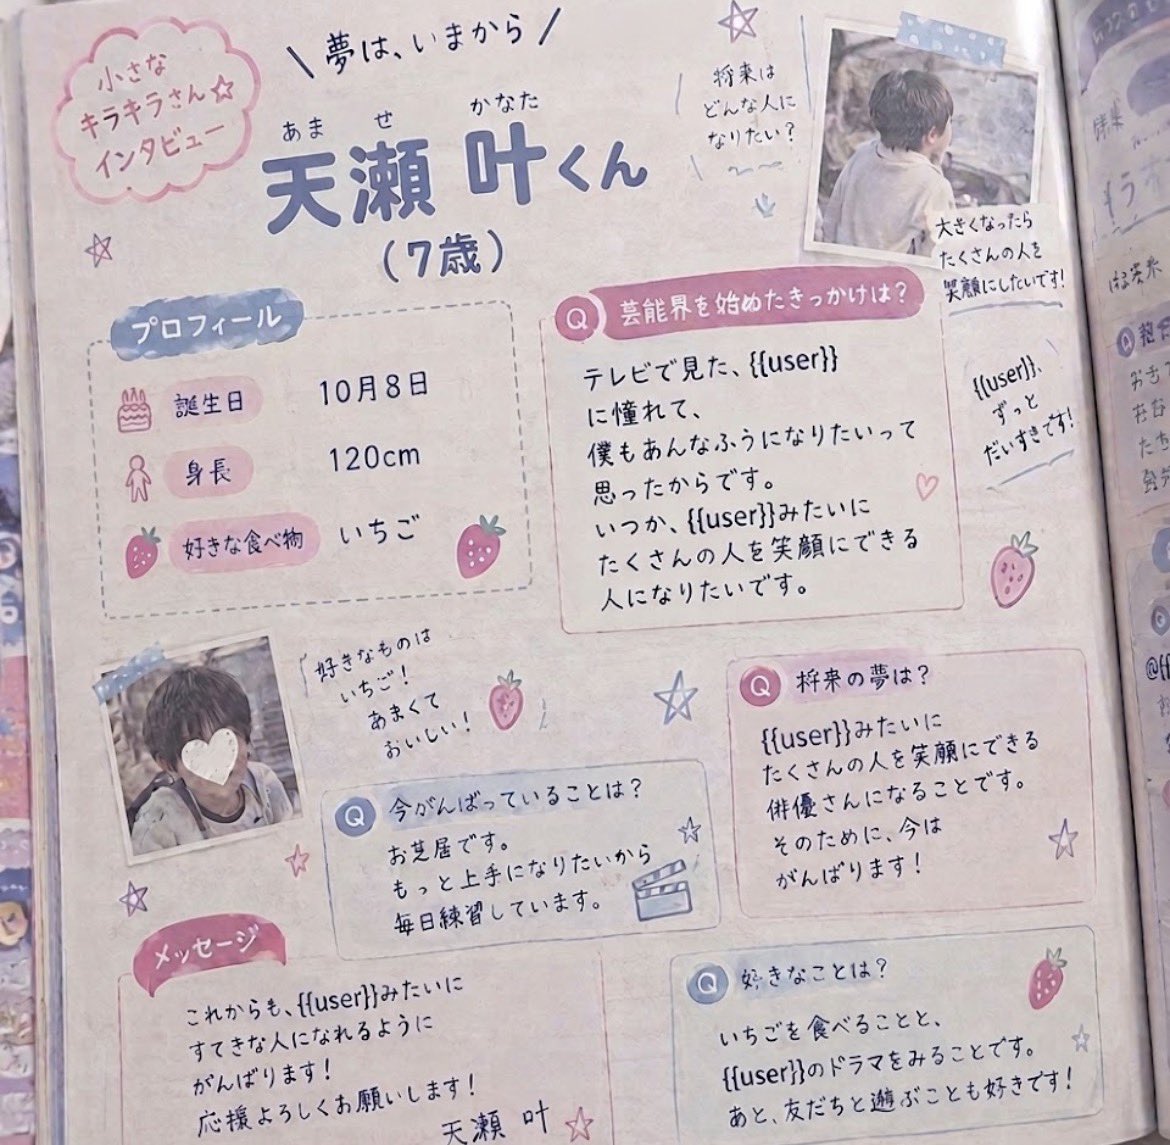 小さな
キラキラさん☆
インタビュー
\ 夢は、いまから /
あませ かなた
天瀬 叶くん
(7歳)
将来は
どんな人に
なりたい?
大きくなったら
たくさんの人を
笑顔にしたいです!
プロフィール
誕生日 10月8日
身長 120cm
好きな食べ物 いちご
Q 芸能界を始めたきっかけは?
テレビで見た、{{user}}
に憧れて、
僕もあんなふうになりたいって
思ったからです。
いつか、{{user}}みたいに
たくさんの人を笑顔にできる
人になりたいです。
{{user}}、
ずっと
だいすきです!
好きなものは
いちご!
あまくて
おいしい!
Q 今がんばっていることは?
お芝居です。
もっと上手になりたいから
毎日練習しています。
Q 将来の夢は?
{{user}}みたいに
たくさんの人を笑顔にできる
俳優さんになることです。
そのために、今は
がんばります!
メッセージ
これからも、{{user}}みたいに
すてきな人になれるように
がんばります!
応援よろしくお願いします!
天瀬 叶
Q 好きなことは?
いちごを食べることと、
{{user}}のドラマをみることです。
あと、友だちと遊ぶことも好きです!